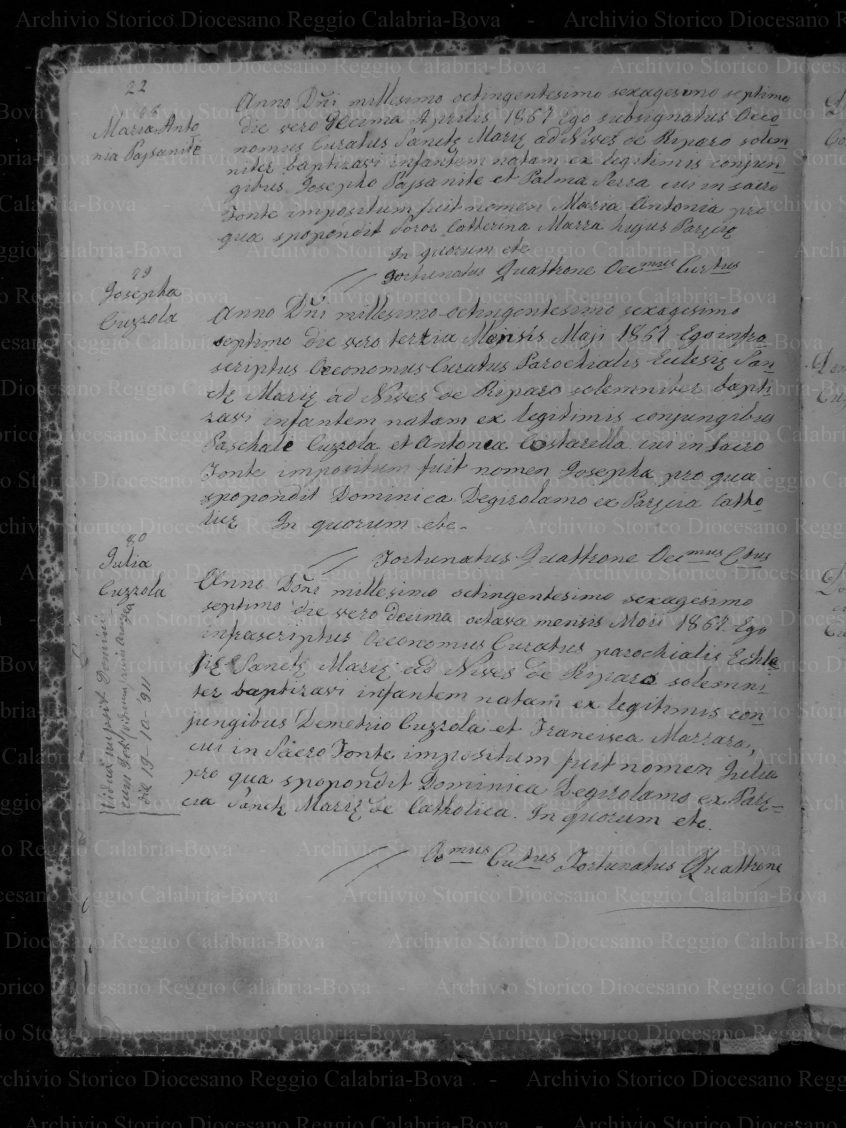 22
Maria Anto
nia Passanite
Anno Dñi millesimo octingentesimo sexagesimo septimo
die vero decima Aprilis 1867 Ego subsignatus Oeco
nomus Curatus Sanctę Marię ad Nives de Riparo solem
niter baptizavi infantem natam ex legitimis conjun
gibus Josepho Passanite et Palma Serra cui in sacro
Fonte impositum fuit nomen Maria Antonia pro
qua spopondit Soror Catterina Marra hujus Paręcię
In quorum etc
Fortunatus Quattrone Oecmus Curtus
79
Josepha
Cuzzola
Anno Dñi millesimo octingentesimo sexagesimo
septimo die vero tertia Mensis Maji 1867 Ego infra
scriptus Oeconomus Curatus Parochialis Eclesię San
ctę Marię ad Nives de Riparo solemniter bapti
zavi infantem natam ex legitimis conjungibus
Paschale Cuzzola et Antonia Costarella cui in Sacro
Fonte impositum fuit nomen Josepha pro qua
spopondit Dominica Degirolamo ex Paręcia Catho
licę In quorum etc.
Fortunatus Quattrone Oecmus Ctus
80
Iulia
Cuzzola
Anno Doñi millesimo octingentesimo sexagesimo
septimo die vero decima octava mensis Maii 1867 Ego
infrascriptus Oeconomus Curatus parochialis Eclę
się Sanctę Marię ad Nives de Riparo solemni
ter baptizavi infantem natam ex legitimis con
jungibus Demetrio Cuzzola et Francisca Marrara,
cui in Sacro Fonte impositum fuit nomen Julia
pro qua spopondit Dominica Degirolamo ex Parę=
cia Sanctę Marię de Catholica. In quorum etc.
Oemus Cutus Fortunatus Quattrone
nupsit
cum
die 19-10-911
Archivio Storico Diocesano Reggio Calabria-Bova